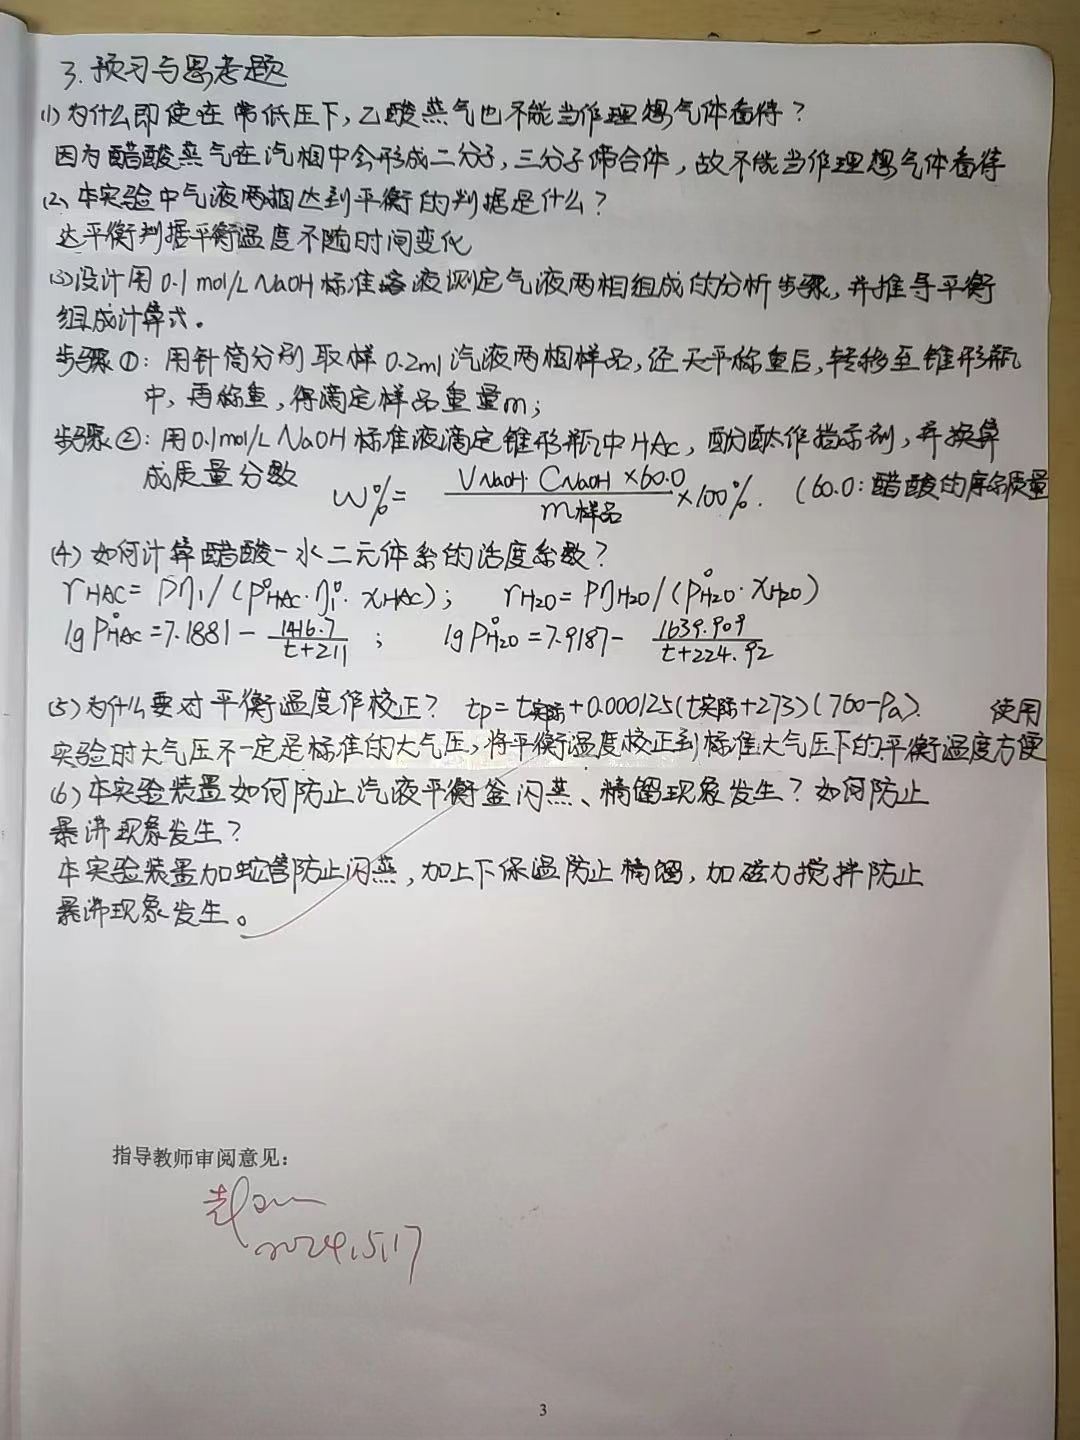 3.预习与思考题
(1)为什么即使在常低压下,乙酸蒸气也不能当作理想气体看待?
因为醋酸蒸气在汽相中会形成二分子,三分子缔合体,故不能当作理想气体看待
(2)本实验中气液两相达到平衡的判据是什么?
达平衡判据平衡温度不随时间变化
(3)设计用0.1mol/L NaOH标准溶液测定气液两相组成的分析步骤,并推导平衡
组成计算式。
步骤①:用针筒分别取样0.2ml汽液两相样品,还天平称重后,转移至锥形瓶
中,再称重,得滴定样品重量m;
步骤②:用0.1mol/L NaOH标准液滴定锥形瓶中HAc,酚酞作指示剂,并换算
成质量分数 W%= VNaOH·CNaOH×60.0/m样品 ×100%. (60.0:醋酸的摩尔质量
(4)如何计算醋酸-水二元体系的活度系数?
rHAC=Pη₁/(P°HAC·η₁°·xHAC); rH2O=PηH2O/(P°H2O·xH2O)
lgP°HAC=7.1881-1416.7/t+211; lgP°H2O=7.9187-1639.909/t+224.92
(5)为什么要对平衡温度作校正? tp=t实际+0.000125(t实际+273)(760-Pa). 使用
实验时大气压不一定是标准的大气压,将平衡温度校正到标准大气压下的平衡温度方便
(6)本实验装置如何防止汽液平衡釜闪蒸、精馏现象发生?如何防止
暴沸现象发生?
本实验装置加蛇管防止闪蒸,加上下保温防止精馏,加磁力搅拌防止
暴沸现象发生。
指导教师审阅意见:
2024.5.17
3